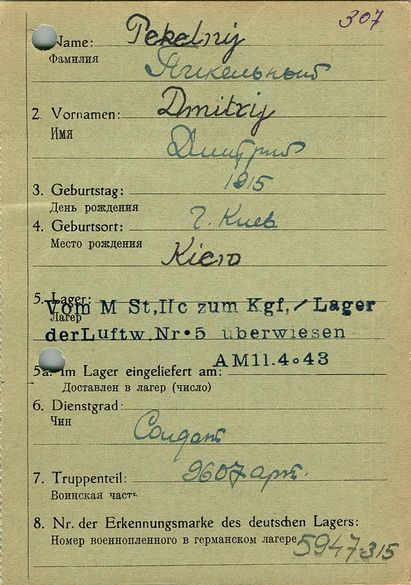 307
Name: Pekelnij
Фамилия Пикельный
2. Vornamen: Dmitrij
Имя Дмитрий
3. Geburtstag: 1915
День рождения
4. Geburtsort: г. Киев
Место рождения
Kiew
5. Lager:
Лагер
Vom M St,IIc zum Kgf,/Lager
derLuftw.Nr.5 überwiesen
AM11.4.43
5a. Im Lager eingeliefert am:
Доставлен в лагер (число)
6. Dienstgrad:
Чин
Солдат
7. Truppenteil: 960 арт.
Воинская часть
8. Nr. der Erkennungsmarke des deutschen Lagers:
Номер военнопленного в германском лагере 5947-315